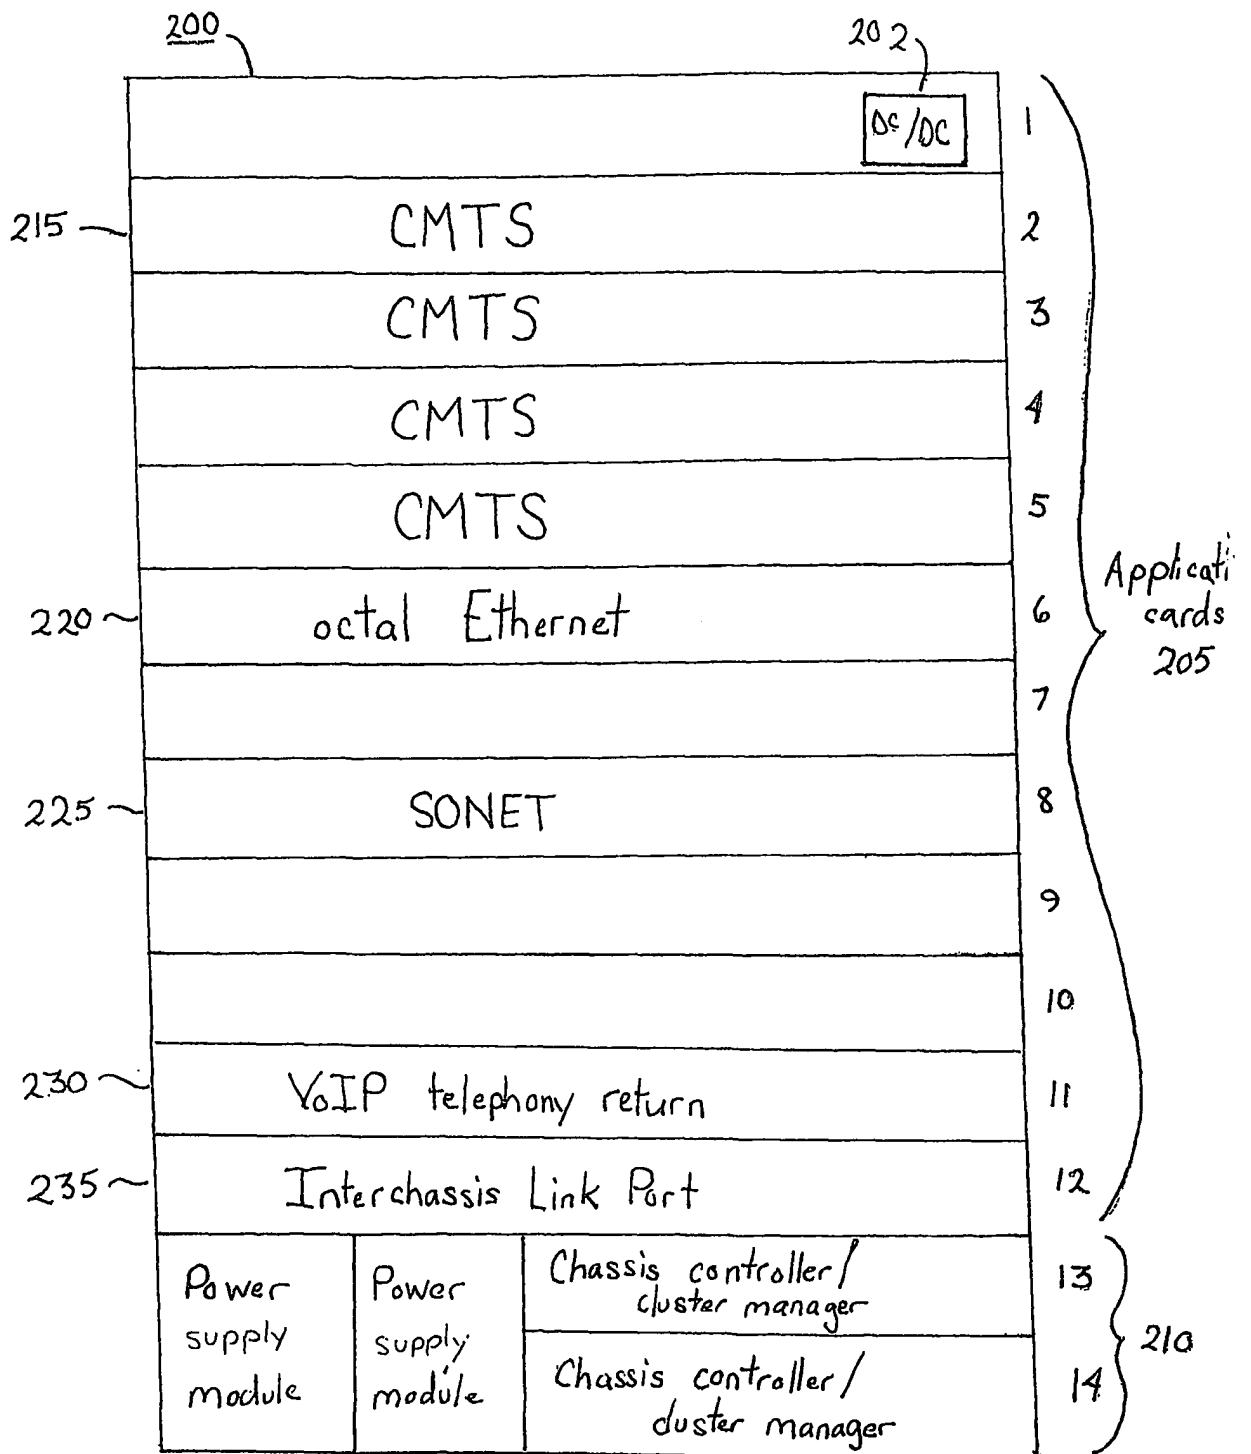 200
202
DC/DC
1
215
CMTS
2
CMTS
3
CMTS
4
CMTS
5
Applicati
cards
205
220
octal Ethernet
6
7
225
SONET
8
9
10
230
VoIP telephony return
11
235
Interchassis Link Port
12
Power
supply
module
Power
supply
module
Chassis controller/
cluster manager
13
Chassis controller/
cluster manager
14
210